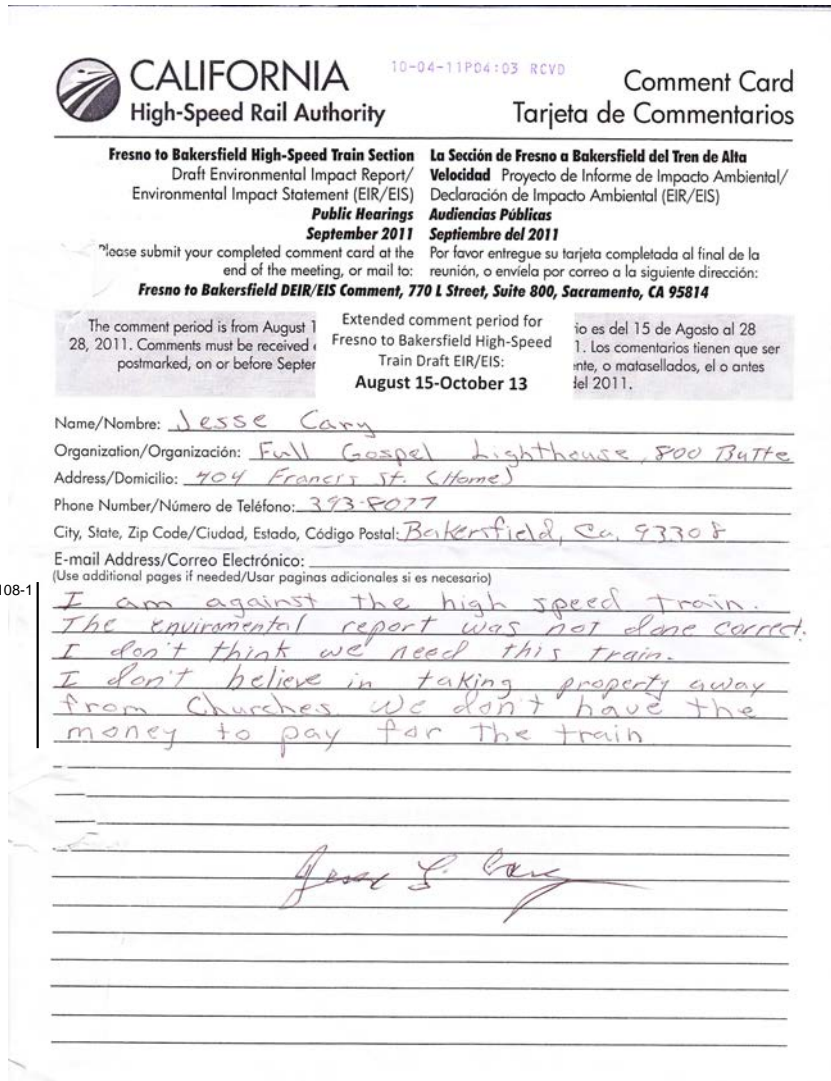 CALIFORNIA
High-Speed Rail Authority
10-04-11P04:03 RCVD
Comment Card
Tarjeta de Commentarios
Fresno to Bakersfield High-Speed Train Section
Draft Environmental Impact Report/
Environmental Impact Statement (EIR/EIS)
Public Hearings
September 2011
Please submit your completed comment card at the
end of the meeting, or mail to:
La Sección de Fresno a Bakersfield del Tren de Alta
Velocidad Proyecto de Informe de Impacto Ambiental/
Declaración de Impacto Ambiental (EIR/EIS)
Audiencias Públicas
Septiembre del 2011
Por favor entregue su tarjeta completada al final de la
reunión, o envíela por correo a la siguiente dirección:
Fresno to Bakersfield DEIR/EIS Comment, 770 L Street, Suite 800, Sacramento, CA 95814
The comment period is from August 1
28, 2011. Comments must be received
postmarked, on or before Septer
Extended comment period for
Fresno to Bakersfield High-Speed
Train Draft EIR/EIS:
August 15-October 13
io es del 15 de Agosto al 28
1. Los comentarios tienen que ser
nte, o matasellados, el o antes
del 2011.
Name/Nombre: Jesse Cary
Organization/Organización: Full Gospel Lighthouse, 800 Butte
Address/Domicilio: 704 Francis St. (Home)
Phone Number/Número de Teléfono: 393-8077
City, State, Zip Code/Ciudad, Estado, Código Postal: Bakersfield, Ca, 93308
E-mail Address/Correo Electrónico:
(Use additional pages if needed/Usar paginas adicionales si es necesario)
108-1
I am against the high speed train.
The enviromental report was not done correct.
I don't think we need this train.
I don't believe in taking property away
from Churches. We don't have the
money to pay for the train
Jesse L. Cary